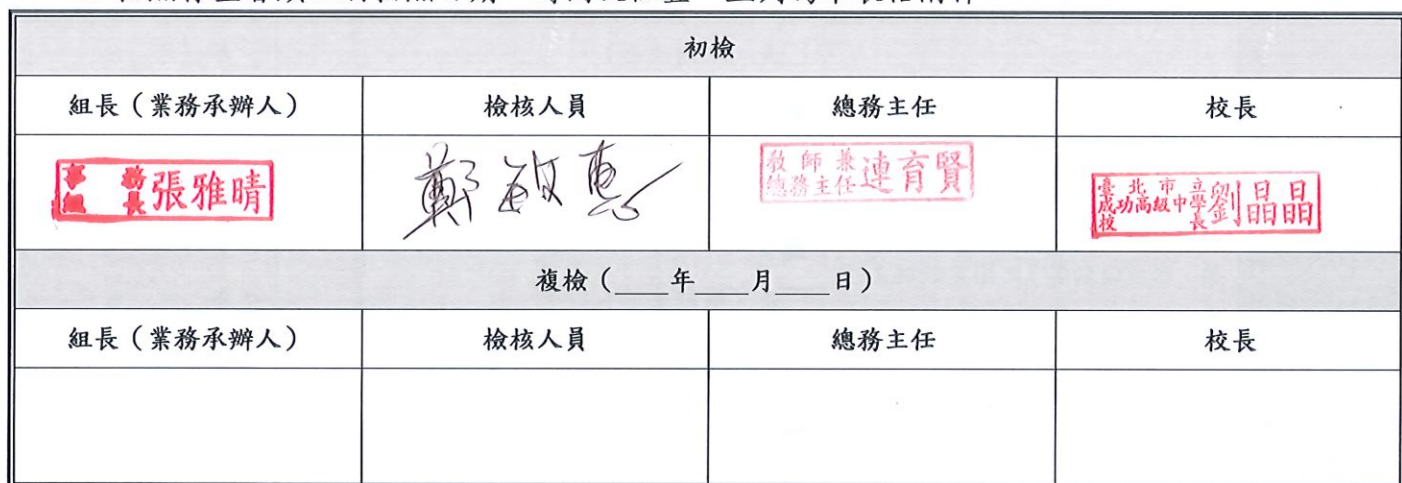 初檢
組長（業務承辦人） 檢核人員 總務主任 校長
事務組長 張雅晴
鄭敏惠
教師兼總務主任 連育賢
臺北市立成功高級中學校長 劉晶晶
複檢（____年____月____日）
組長（業務承辦人） 檢核人員 總務主任 校長